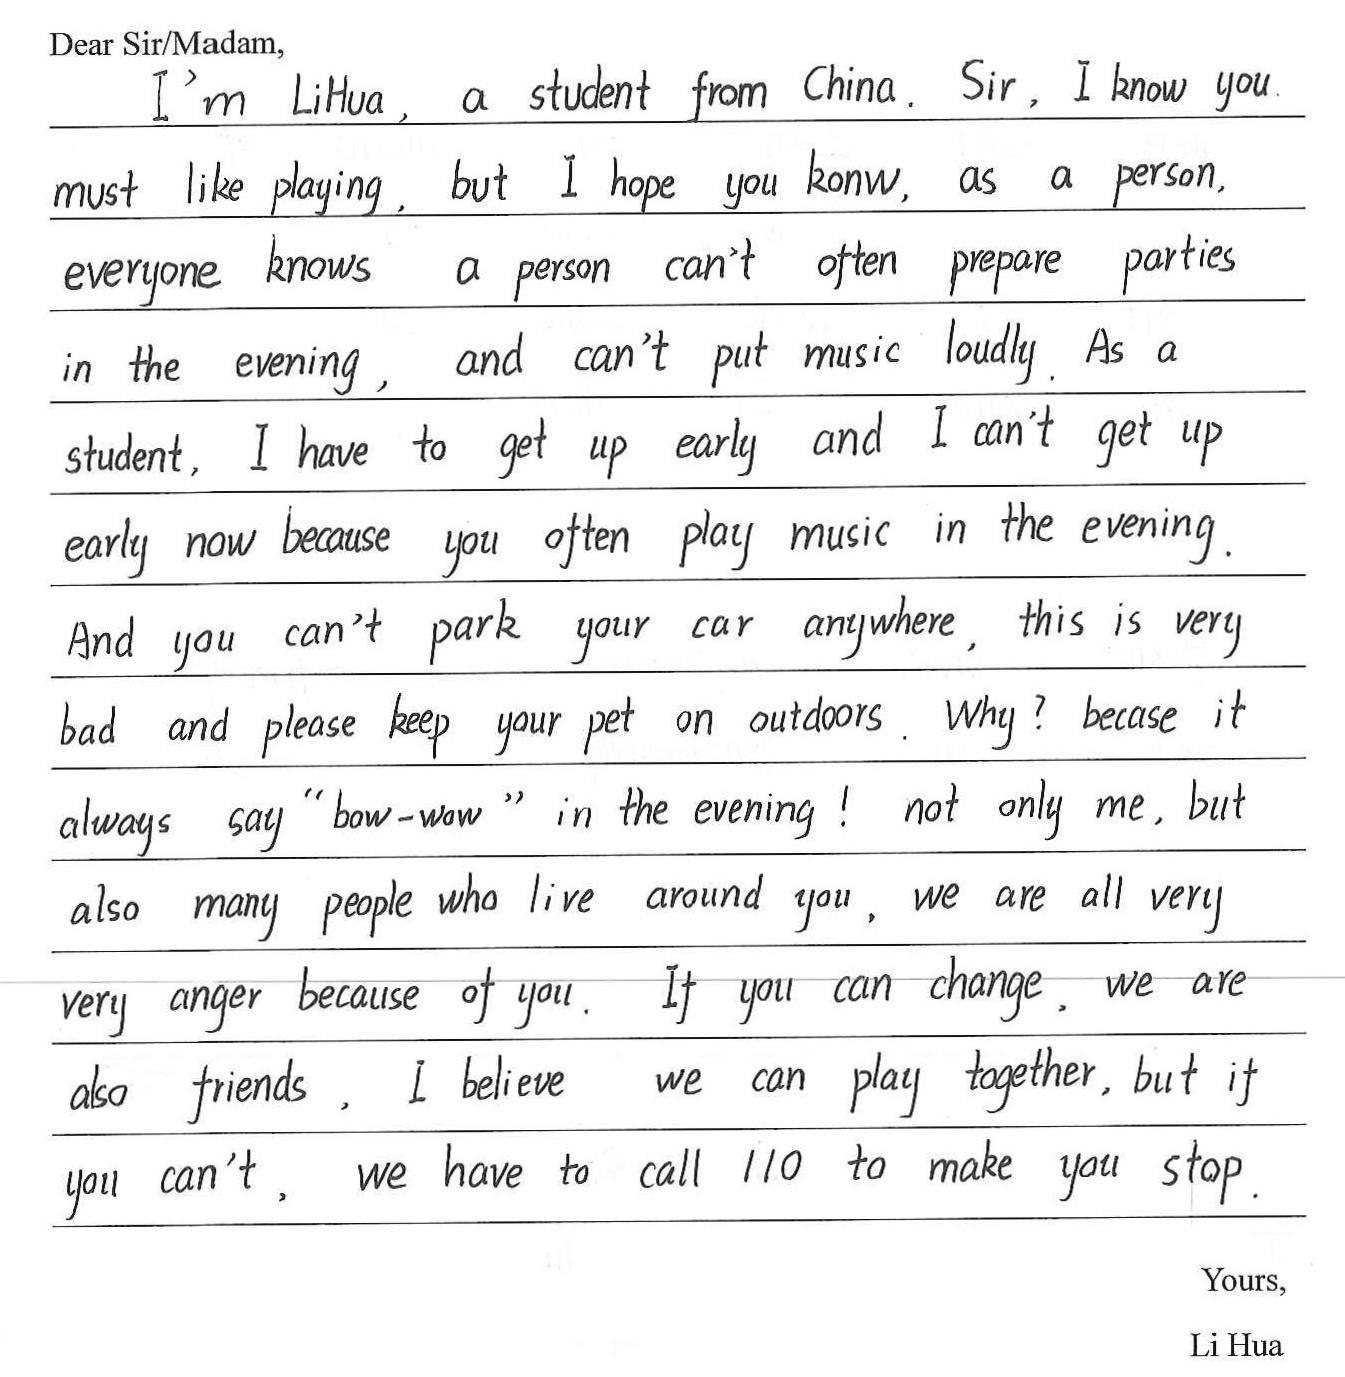 Dear Sir/Madam,
I'm LiHua, a student from China. Sir, I know you.
must like playing, but I hope you konw, as a person,
everyone knows a person can't often prepare parties
in the evening, and can't put music loudly. As a
student, I have to get up early and I can't get up
early now because you often play music in the evening.
And you can't park your car anywhere, this is very
bad and please keep your pet on outdoors. Why? becase it
always say "bow-wow" in the evening! not only me, but
also many people who live around you, we are all very
very anger because of you. If you can change, we are
also friends, I believe we can play together, but if
you can't, we have to call 110 to make you stop.
Yours,
Li Hua